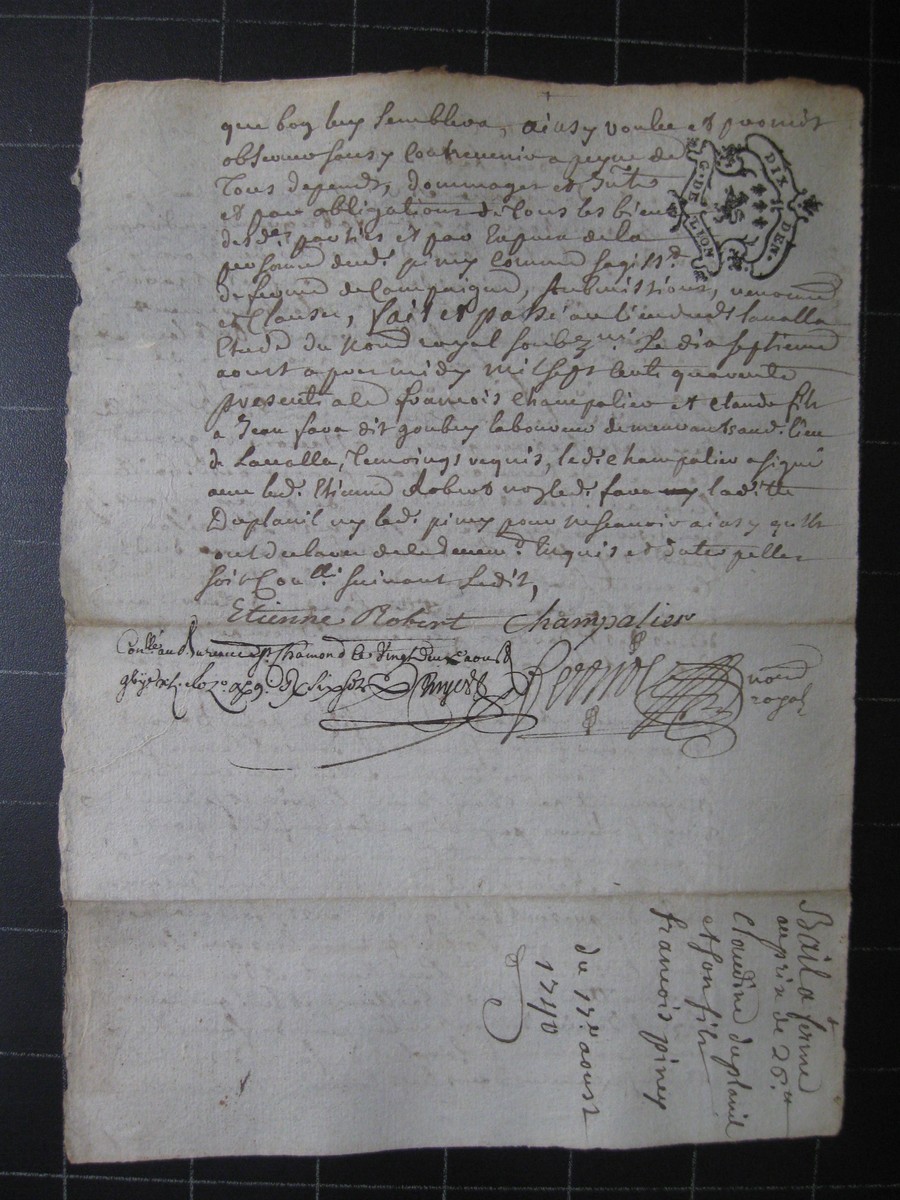 que bon luy semblera, ainsy voulu et promis
observer sans y contrevenir a peyne de
tous depends, dommages et Intts
et par obligations de tous les biens
desdes parties et par la
personne dud. piney comme sagissd
de ferme de Campaigne, submissions, renonc
et clauses, fait et passé au lieu de Lavalla
Etude du Nore royal soubzné Le dix septieme
aoust apres midy mil sept cents quarante
presents a ce francois Champalier et Claude fils
a Jean fara dit laboureur aud. lieu
de Lavalla, temoings requis, led. Champalier a signé
avec led. Etienne Robert non led. fara ny ladite
Duplanil ny led. piney pour ne scavoir ainsy quils
ont declaré de ce Enquis et Interpellés
soit Conllé suivant Ledit,
Etienne Robert Champalier
Conllé au Bureau de St Chamond le Vingt deux aoust
six sols
nore
royal
G. DE LION
DIX DEN.
Bail a ferme
au prix de 26
Claudine duplanil
et son fils
francois piney
du 17e aoust
1740